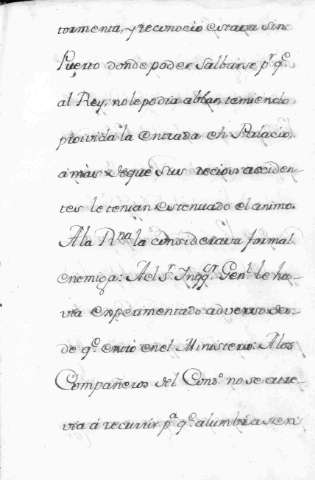 tormenta, y reconocio estava sin
Puerto donde poder salbarse pr. qe.
al Rey, no le podia ablar, teniendo
proivida la entrada en Palacio,
a mas de que sus recios acciden
tes le tenian estenuado el animo.
A la Rna. la considerava formal
enemiga: Al Sr. Inqqr. Genl. le ha-
via experimentado adverso des-
de qe. entró en el Ministerio: A los
Compañeros del Conso. no se atre-
via á recurrir pa. qe. alumbrasen